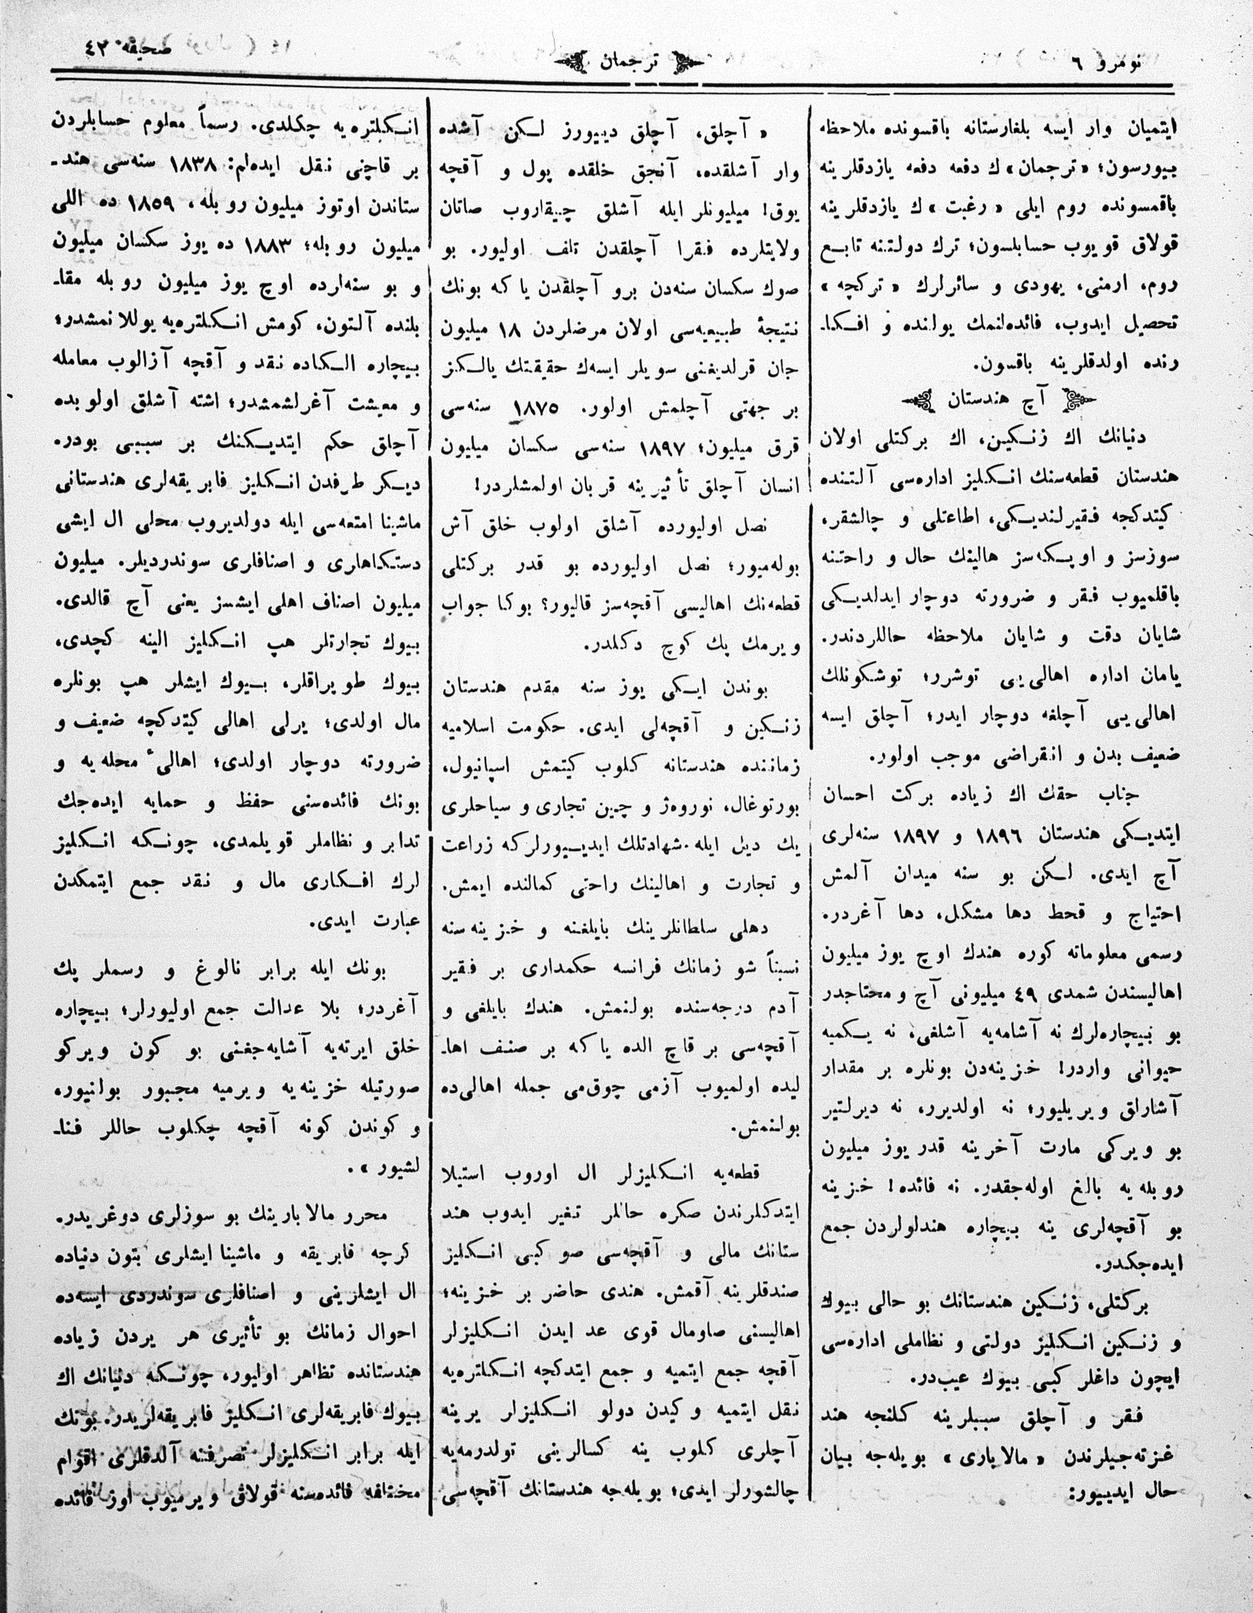 نومرو ٦
ترجمان
صحیفه ٤٢
ایتمیان وار ایسه بلغارستانه باقسونده ملاحظه
بیورسون؛ «ترجمان»ك دفعه دفعه یازدقلرینه
باقمسونده روم ایلی «رغبت»ك یازدقلرینه
قولاق قویوب حسابلسون؛ ترك دولتنه تابع
روم، ارمنی، یهودی و سائرلرك «تركچه»
تحصیل ایدوب، فائده‌لنمك یولنده و افكا‌ـ
رنده اولدقلرینه باقسون.
آچ هندستان
دنیانك اك زنكین، اك بركتلی اولان
هندستان قطعه‌سنك انكلیز اداره‌سی آلتنده
كیتدكجه فقیرلندیكی، اطاعتلی و چالشقر،
سوزسز و اوپكه‌سز هالینك حال و راحتنه
باقلمیوب فقر و ضرورته دوچار ایدلدیكی
شایان دقت و شایان ملاحظه حاللردندر.
یامان اداره اهالی‌یی توشرر؛ توشكونلك
اهالی‌یی آچلغه دوچار ایدر؛ آچلق ایسه
ضعیف بدن و انقراضی موجب اولور.
جناب حقك اك زیاده بركت احسان
ایتدیكی هندستان ١٨٩٦ و ١٨٩٧ سنه‌لری
آچ ایدی. لكن بو سنه میدان آلمش
احتیاج و قحط دها مشكل، دها آغردر.
رسمی معلوماته كوره هندك اوچ یوز میلیون
اهالیسندن شمدی ٤٩ میلیونی آچ و محتاجدر
بو بیچاره‌لرك نه آشامه‌یه آشلغی، نه یكمیه
حیوانی واردر! خزینه‌دن بونلره بر مقدار
آشاراق ویریلیور؛ نه اولدیرر، نه دیرلتیر
بو ویركی مارت آخرینه قدر یوز میلیون
روبله‌یه بالغ اوله‌جقدر. نه فائده! خزینه
بو آقچه‌لری ینه بیچاره هندلولردن جمع
ایده‌جكدر.
بركتلی، زنكین هندستانك بو حالی بیوك
و زنكین انكلیز دولتی و نظاملی اداره‌سی
ایچون داغلر كبی بیوك عیب‌در.
فقر و آچلق سببلرینه كلنجه هند
غزته‌جیلرندن «مالاباری» بویله‌جه بیان
حال ایدییور:
« آچلق، آچلق دییورز لكن آشده
وار آشلقده، آنجق خلقده پول و آقچه
یوق! میلیونلر ایله آشلق چیقاروب صاتان
ولایتلرده فقرا آچلقدن تلف اولیور. بو
صوك سكسان سنه‌دن برو آچلقدن یاكه بونك
نتیجهٔ طبیعیه‌سی اولان مرضلردن ١٨ میلیون
جان قرلدیغنی سویلر ایسه‌ك حقیقتك یالكز
بر جهتی آچلمش اولور. ١٨٧٥ سنه‌سی
قرق میلیون؛ ١٨٩٧ سنه‌سی سكسان میلیون
انسان آچلق تأثیرینه قربان اولمشلردر!
نصل اولیورده آشلق اولوب خلق آش
بوله‌میور؛ نصل اولیورده بو قدر بركتلی
قطعه‌نك اهالیسی آقچه‌سز قالیور؟ بوكا جواب
ویرمك پك كوچ دكلدر.
بوندن ایكی یوز سنه مقدم هندستان
زنكین و آقچه‌لی ایدی. حكومت اسلامیه
زماننده هندستانه كلوب كیتمش اسپانیول،
بورتوغال، نوروه‌ژ و چین تجاری و سیاحلری
یك دیل ایله شهادتلك ایدییورلركه زراعت
و تجارت و اهالینك راحتی كمالنده ایمش.
دهلی سلطانلرینك بایلغنه و خزینه‌سنه
نسبتاً شو زمانك فرانسه حكمداری بر فقیر
آدم درجه‌سنده بولنمش. هندك بایلغی و
آقچه‌سی بر قاچ الده یاكه بر صنف اها‌ـ
لیده اولمیوب آزمی چوق‌می جمله اهالی‌ده
بولنمش.
قطعه‌یه انكلیزلر ال اوروب استیلا
ایتدكلرندن صكره حاللر تغیر ایدوب هند
ستانك مالی و آقچه‌سی صو كبی انكلیز
صندقلرینه آقمش. هندی حاضر بر خزینه؛
اهالیسنی صاومال قوی عد ایدن انكلیزلر
آقچه جمع ایتمیه و جمع ایتدكچه انكلتره‌یه
نقل ایتمیه وكیدن دولو انكلیزلر یرینه
آچلری كلوب ینه كسالرینی تولدرمه‌یه
چالشورلر ایدی؛ بویله‌جه هندستانك آقچه‌سی
انكلتره‌یه چكلدی. رسماً معلوم حسابلردن
بر قاچنی نقل ایده‌لم: ١٨٣٨ سنه‌سی هند‌ـ
ستاندن اوتوز میلیون روبله، ١٨٥٩ ده اللی
میلیون روبله؛ ١٨٨٣ ده یوز سكسان میلیون
و بو سنه‌لرده اوچ یوز میلیون روبله مقا‌ـ
بلنده آلتون، كومش انكلتره‌یه یوللانمشدر؛
بیچاره الكاده نقد و آقچه آزالوب معامله
و معیشت آغرلشمشدر؛ اشته آشلق اولوبده
آچلق حكم ایتدیكنك بر سببی بودر.
دیكر طرفدن انكلیز فابریقه‌لری هندستانی
ماشینا امتعه‌سی ایله دولدیروب محلی ال ایشی
دستكاهلری و اصنافلری سوندردیلر. میلیون
میلیون اصناف اهلی ایشسز یعنی آچ قالدی.
بیوك تجارتلر هپ انكلیز الینه كچدی،
بیوك طوپراقلر، بیوك ایشلر هپ بونلره
مال اولدی؛ یرلی اهالی كیتدكچه ضعیف و
ضرورته دوچار اولدی؛ اهالیٔ محله‌یه و
بونك فائده‌سنی حفظ و حمایه ایده‌جك
تدابر و نظاملر قویلمدی، چونكه انكلیز
لرك افكاری مال و نقد جمع ایتمكدن
عبارت ایدی.
بونك ایله برابر نالوغ و رسملر پك
آغردر؛ بلا عدالت جمع اولیورلر؛ بیچاره
خلق ایرته‌یه آشایه‌جغنی بو كون ویركو
صورتیله خزینه‌یه ویرمیه مجبور بولنیور،
و كوندن كونه آقچه چكلوب حاللر فنا‌ـ
لشیور».
محرر مالابارینك بو سوزلری دوغریدر.
كرچه فابریقه و ماشینا ایشلری بتون دنیاده
ال ایشلرینی و اصنافلری سوندردی ایسه‌ده
احوال زمانك بو تأثیری هر یردن زیاده
هندستانده تظاهر اولیور، چونكه دنیانك اك
بیوك فابریقه‌لری انكلیز فابریقه‌لریدر. بونك
ایله برابر انكلیزلر تصرفنه آلدقلری اقوام
مختلفه فائده‌سنه قولاق ویرمیوب اوز فائده